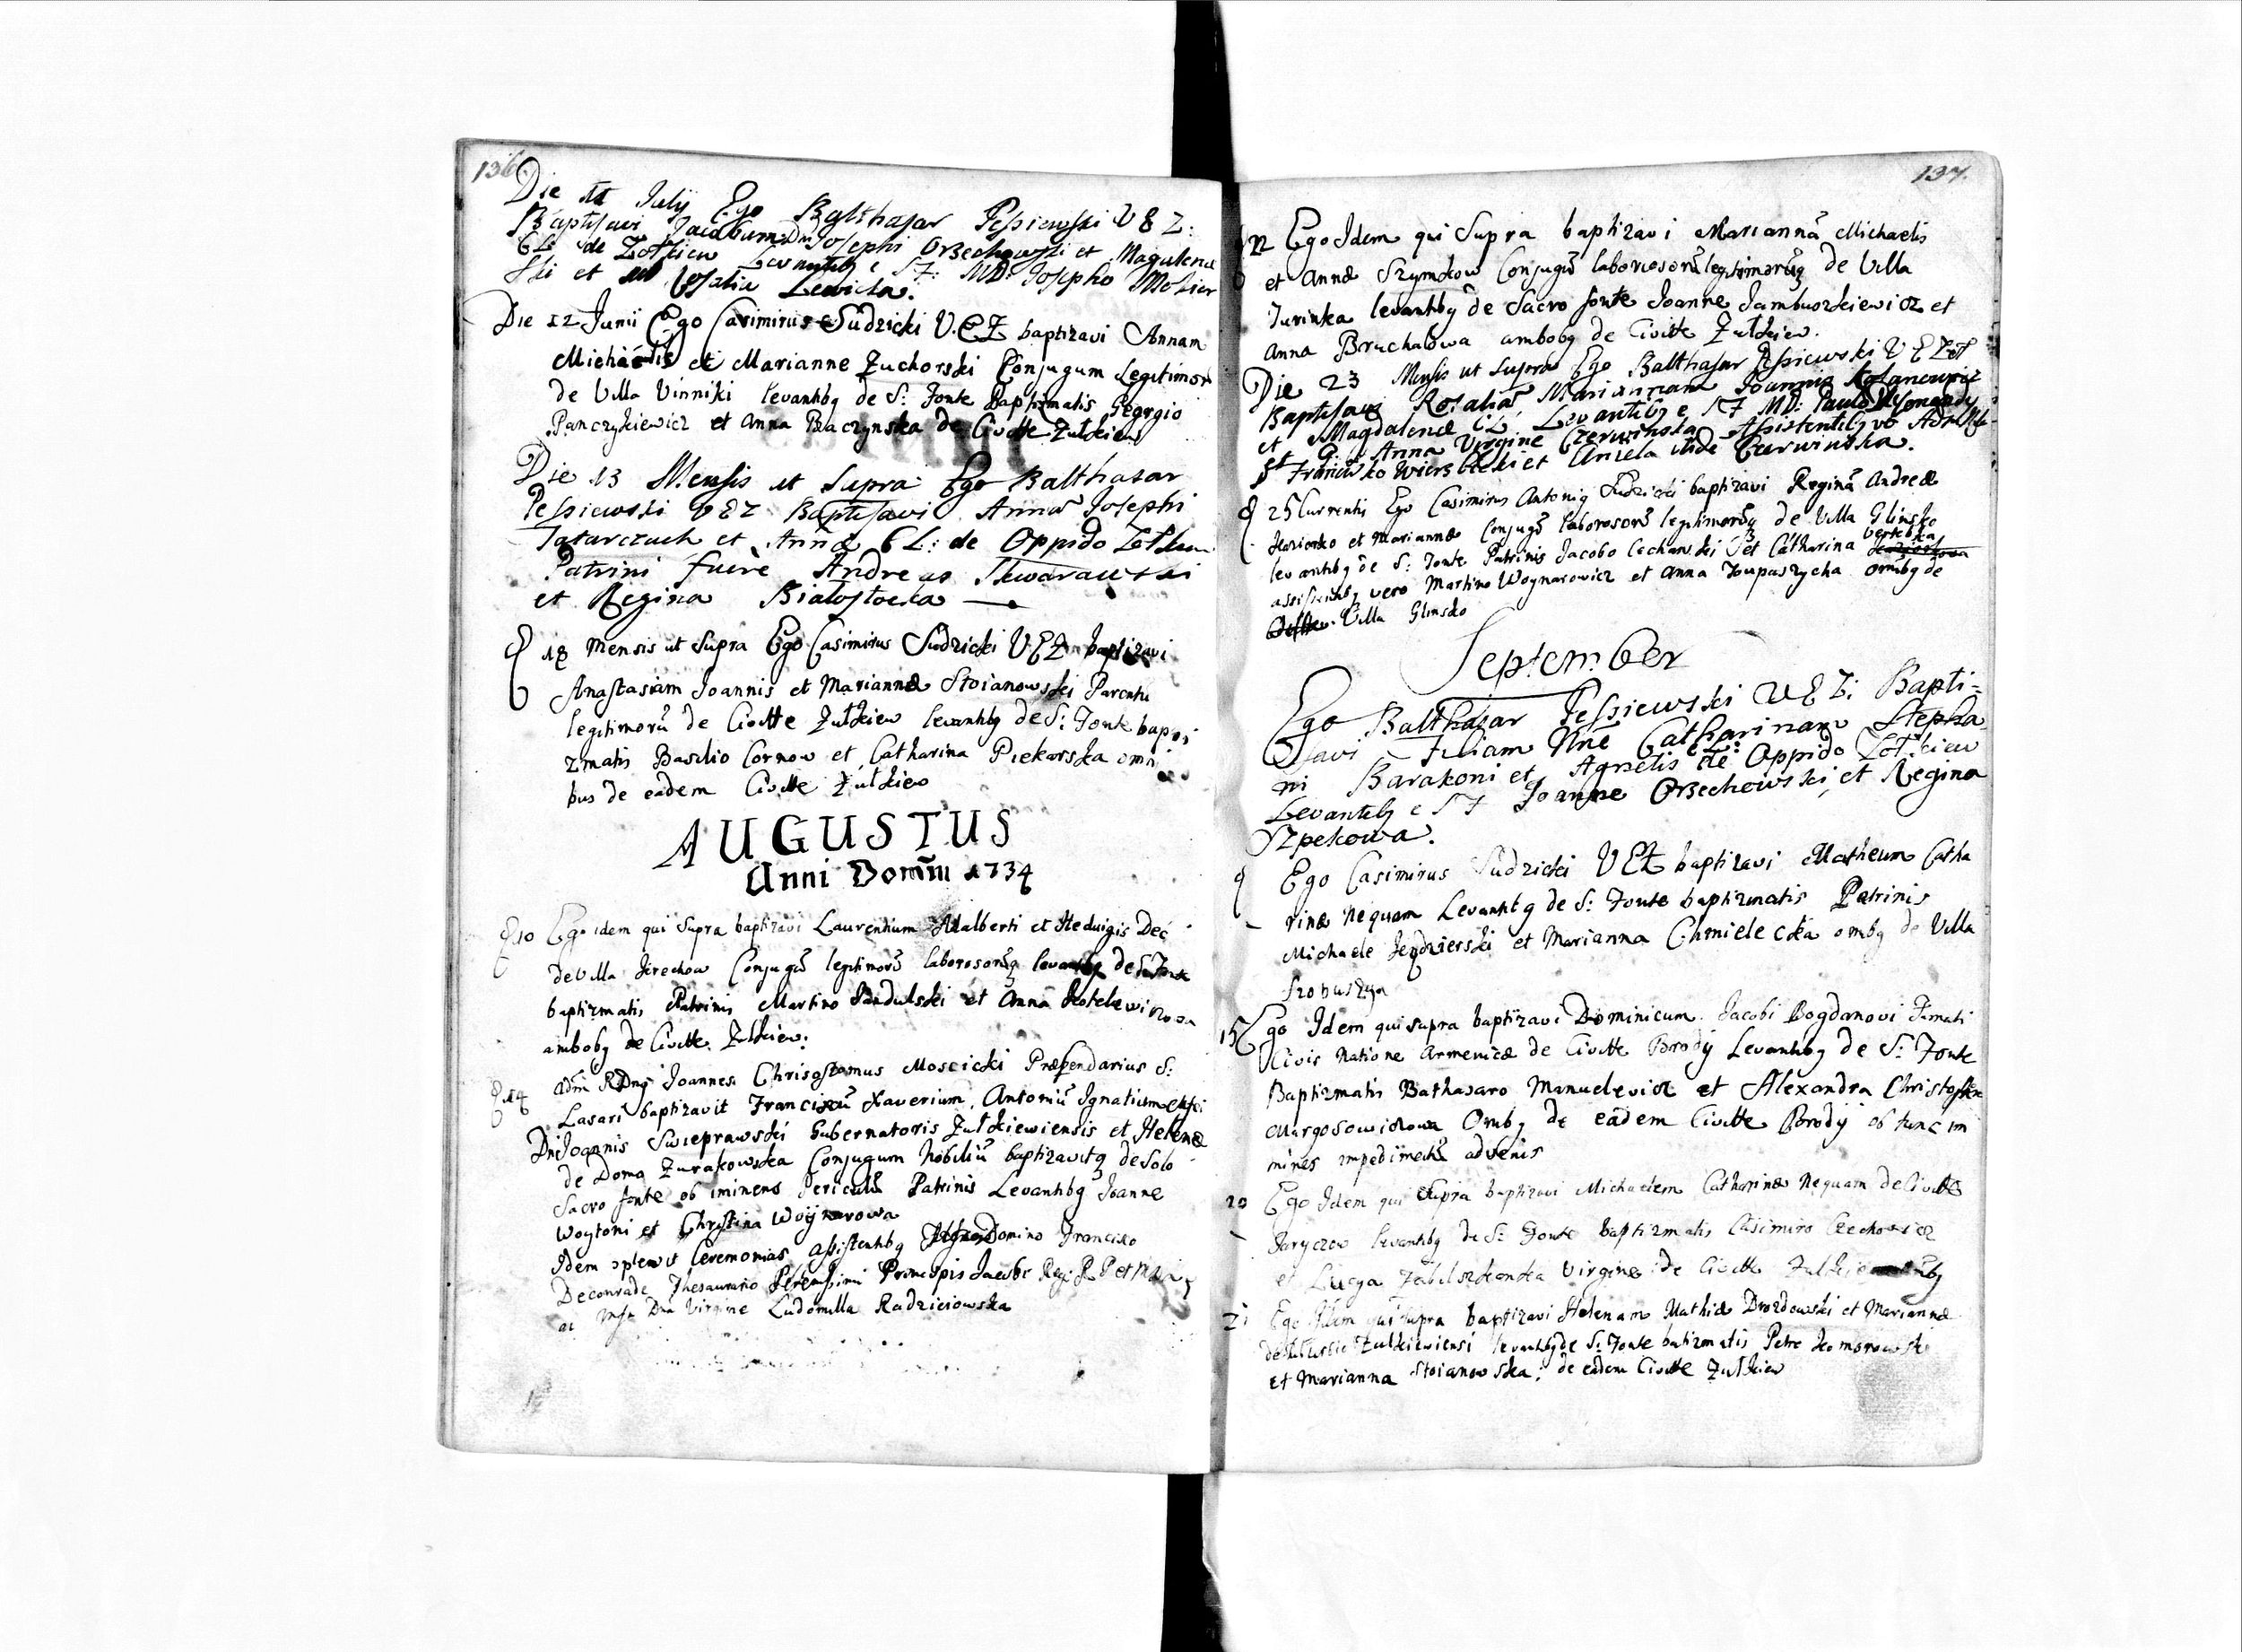 136.
Die 11 July Ego Balthasar Pessiewski V E Z:
Baptisavi Jacobum Dni Josephi Orzechowski et Magdalena
CL: de Zolkiew Levantibq e S F: MD: Josepho Molier
ski et Rosalia Lewicka.
Die 12 Junii Ego Casimirus Sudzicki V.E.Z baptizavi Annam
Michaelis et Marianne Zuchorski Conjugum Legitimor
de Villa Vinniki levantibq de S: Fonte Baptizmatis Georgio
Panczykiewicz et Anna Baczynska de Civitte Zulkiew
Die 13 Mensis ut Supra Ego Balthasar
Pessiewski V E Z Baptisavi Annā Josephi
Tatarczuch et Annæ C L: de Oppido Zolkiew
Patrini fuere Andreas Skwarawski
et Regina Białostocka
18 Mensis ut Supra Ego Casimirus Sudzicki V E Z baptizavi
Anastasiam Joannis et Mariannæ Stoianowski Parentu
legitimorū de Civitte Zulkiew levantibq de S: Fonte bapti
zmatis Basilio Cornow et Catharina Piekarska omni
bus de eadem Civitte Zulkiew
AUGUSTUS
Anni Domini 1734
10 Ego idem qui Supra baptizavi Laurentium Adalberti et Heduigis Dec
de Villa Kirechow Conjugū legitimorū laborosorūq levantibq de S: Fonte
baptizmatis Patrinis Martino Sandulski et Anna Kotelewiczowa
ambobq de Civitte Zulkiew:
14 Adm RDnq Joannes Chrisostomus Moscicki Præpendarius S:
Lasari baptizavit Franciscū Xaverium, Antoniū Ignatium
Dni Joannis Swieprawski Gubernatoris Zulkiewiensis et Helenæ
de Domo Zurakowska Conjugum Nobiliū baptizavitq de Solo
Sacro fonte ob iminens Periculū Patrinis Levantibq Joanne
Woytoni et Christina Woynarowa
Idem oplevit Ceremonias assistentibq Domino Francisco
Deconrade Thesaurario Serenissimi Principis Jacobi Reg: P et M
ac Mga Dna Virgine Ludomilla Radziciowska
137.
22 Ego Idem qui Supra baptizavi Mariannā Michaelis
et Annæ Szymkow Conjugū laboriosorū legitimorūq de Villa
Turinka levantibq de Sacro fonte Joanne Jambuorkiewicz et
Anna Bruchalowa ambobq de Civitte Zulkiew.
Die 23 Mensis ut Supra Ego Balthasar Pessiewski V E Zol
Baptisavi Rosaliā Mariannam Joannis
et Magdalenæ CL Levantibq e S F MD: Paulo
et G: Anna Virgine Czerwinska Assistentibq vo
Francisko Wiersbicki et Aniela itide Czerwinska.
25 Currentis Ego Casimirus Antoniq Sudzicki baptizavi Reginā Andreæ
Koziorko et Mariannæ Conjugū laborosorū legitimorūq de Villa Glinsko
levantibq de S: Fonte Patrinis Jacobo Cechanski et Catharina Vertebka
assistentibq vero Martino Woynarowicz et Anna Koupaszycha ombq de
Villa Glinsko
September
Ego Balthazar Pessiewski V E Z: Bapti-
savi Filiam Nne Catharinam Stepha
ni Barakoni et Agnetis de Oppido Zolkiew
Levantibq e S F Joanne Orzechowski, et Regina
Szpekowa.
9 Ego Casimirus Sudzicki V E Z baptizavi Matheum Catha
rinæ Nequam Levantibq de S: Fonte baptizmatis Patrinis
Michaele Jendzierski et Marianna Chmielecka ombq de Villa
Srobuszya
15 Ego Idem qui supra baptizavi Dominicum Jacobi Bogdanovi
Civis Natione Armenicæ de Civitte Brody Levantibq de S: Fonte
Baptizmatis Bathazaro Manuelevicz et Alexandra Christoph
Margosowiczowa Ombq de eadem Civitte Brody ob tunc im
mines impedimētū advenis
20 Ego Idem qui Supra baptizavi Michaelem Catharinæ Nequam de Civitte
Jaryczow levantibq de S: Fonte baptizmatis Casimiro Czechowicz
et Lucya Zabilszkonska Virgine de Civitte Zulkiew
21 Ego Idem qui supra baptizavi Helenam Mathiæ Drozdowski et Mariannæ
de Zulkiewiensi levantibq de S: Fonte batizmatis Petro Komorowski
et Marianna Stoianowska: de eadem Civitte Zulkiew